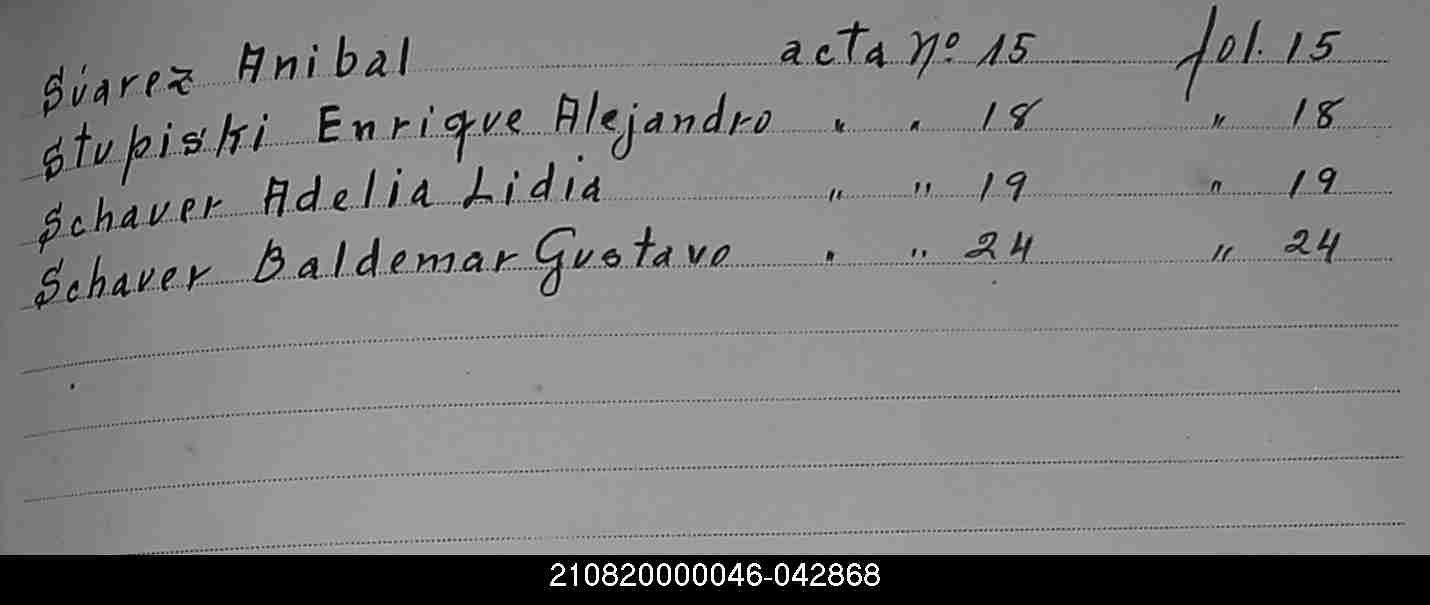 Súarez Anibal acta nº 15 fol. 15
Stupiski Enrique Alejandro " " 18 " 18
Schauer Adelia Lidia " " 19 " 19
Schauer Baldemar Gustavo " " 24 " 24
210820000046-042868